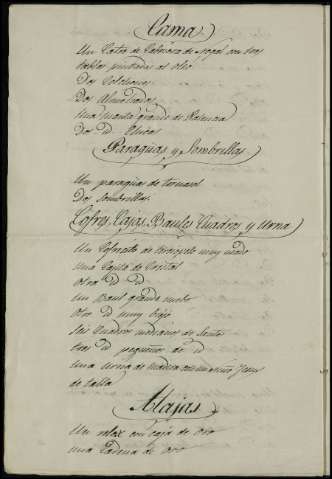 Cama
Un Catre de Cabecera de Nogal con tres
tablas pintadas al olio
Dos Colchones
Dos Almohadas
Una manta grande de Palencia
dos id. chicas
Paraguas y Sombrillas
Un paraguas de
Dos Sombrillas
Cofres, Cajas, Baules, Cuadros y Urna
Un Cofrecito de terciopelo muy usado
una Cajita de
Otra id id
un Baul grande
Otro id muy biejo
Seis Cuadros medianos de Santos
tres id pequeños de id
una Urna de madera con un niño Jesus
de talla
Alajas
Un relox con caja de oro
una Cadena de oro